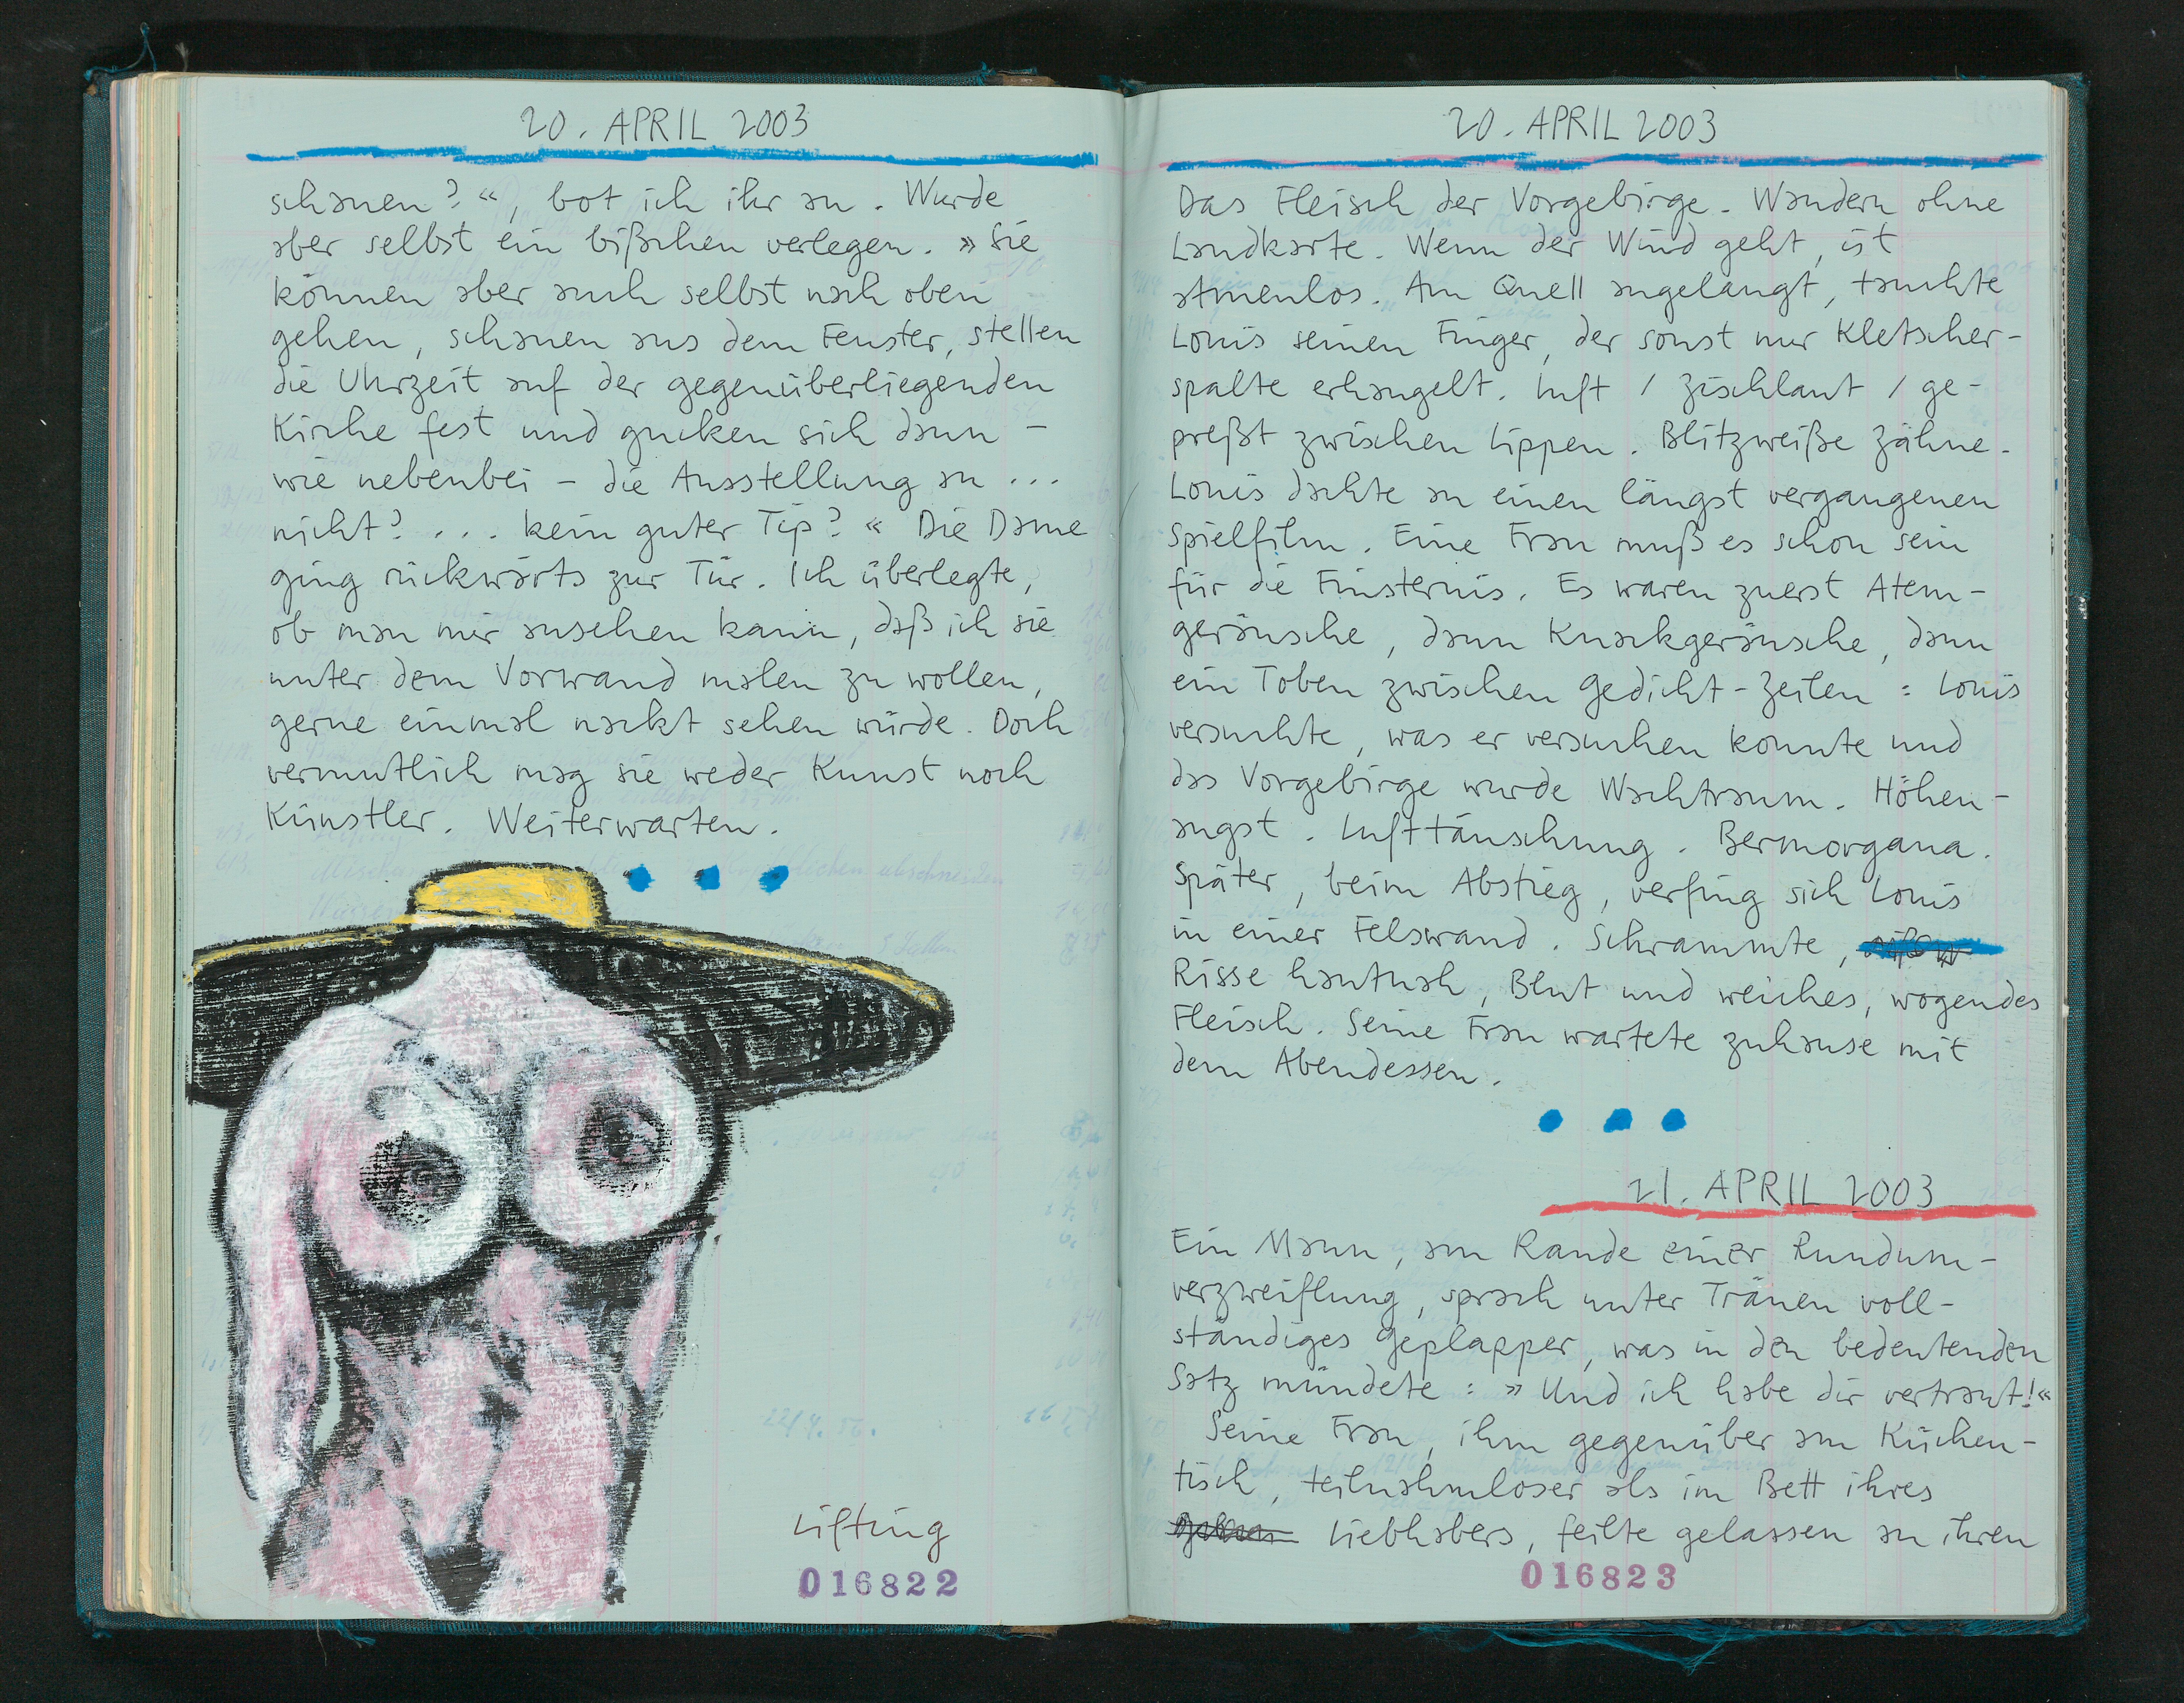 20. APRIL 2003
schauen?«, bot ich ihr an. Wurde
aber selbst ein bißchen verlegen. »Sie
können aber auch selbst nach oben
gehen, schauen aus dem Fenster, stellen
die Uhrzeit auf der gegenüberliegenden
Kirche fest und gucken sich dann –
wie nebenbei – die Ausstellung an ...
nicht? ... kein guter Tip?« Die Dame
ging rückwärts zur Tür. Ich überlegte,
ob man mir ansehen kann, daß ich sie
unter dem Vorwand malen zu wollen,
gerne einmal nackt sehen würde. Doch
vermutlich mag sie weder Kunst noch
Künstler. Weiterwarten.
Lifting
016822
20. APRIL 2003
Das Fleisch der Vorgebirge. Wandern ohne
Landkarte. Wenn der Wind geht, ist
atmenlos. Am Quell angelangt, tauchte
Louis seinen Finger, der sonst nur Kletscher-
spalte erhangelt. Luft / Zischlaut / ge-
preßt zwischen Lippen. Blitzweiße Zähne.
Louis dachte an einen längst vergangenen
Spielfilm. Eine Frau muß es schon sein
für die Finsternis. Es waren zuerst Atem-
geräusche, dann Knackgeräusche, dann
ein Toben zwischen Gedicht-Zeilen: Louis
versuchte, was er versuchen konnte und
das Vorgebirge wurde Wachtraum. Höhen-
angst. Lufttäuschung. Bermorgana.
Später, beim Abstieg, verfing sich Louis
in einer Felswand. Schrammte,
Risse hautnah, Blut und weiches, wogendes
Fleisch. Seine Frau wartete zuhause mit
dem Abendessen.
21. APRIL 2003
Ein Mann, am Rande einer Rundum-
verzweiflung, sprach unter Tränen voll-
ständiges Geplapper, was in den bedeutenden
Satz mündete: »Und ich habe dir vertraut!«
Seine Frau, ihm gegenüber am Küchen-
tisch, teilnahmloser als im Bett ihres
Liebhabers, feilte gelassen an ihren
016823